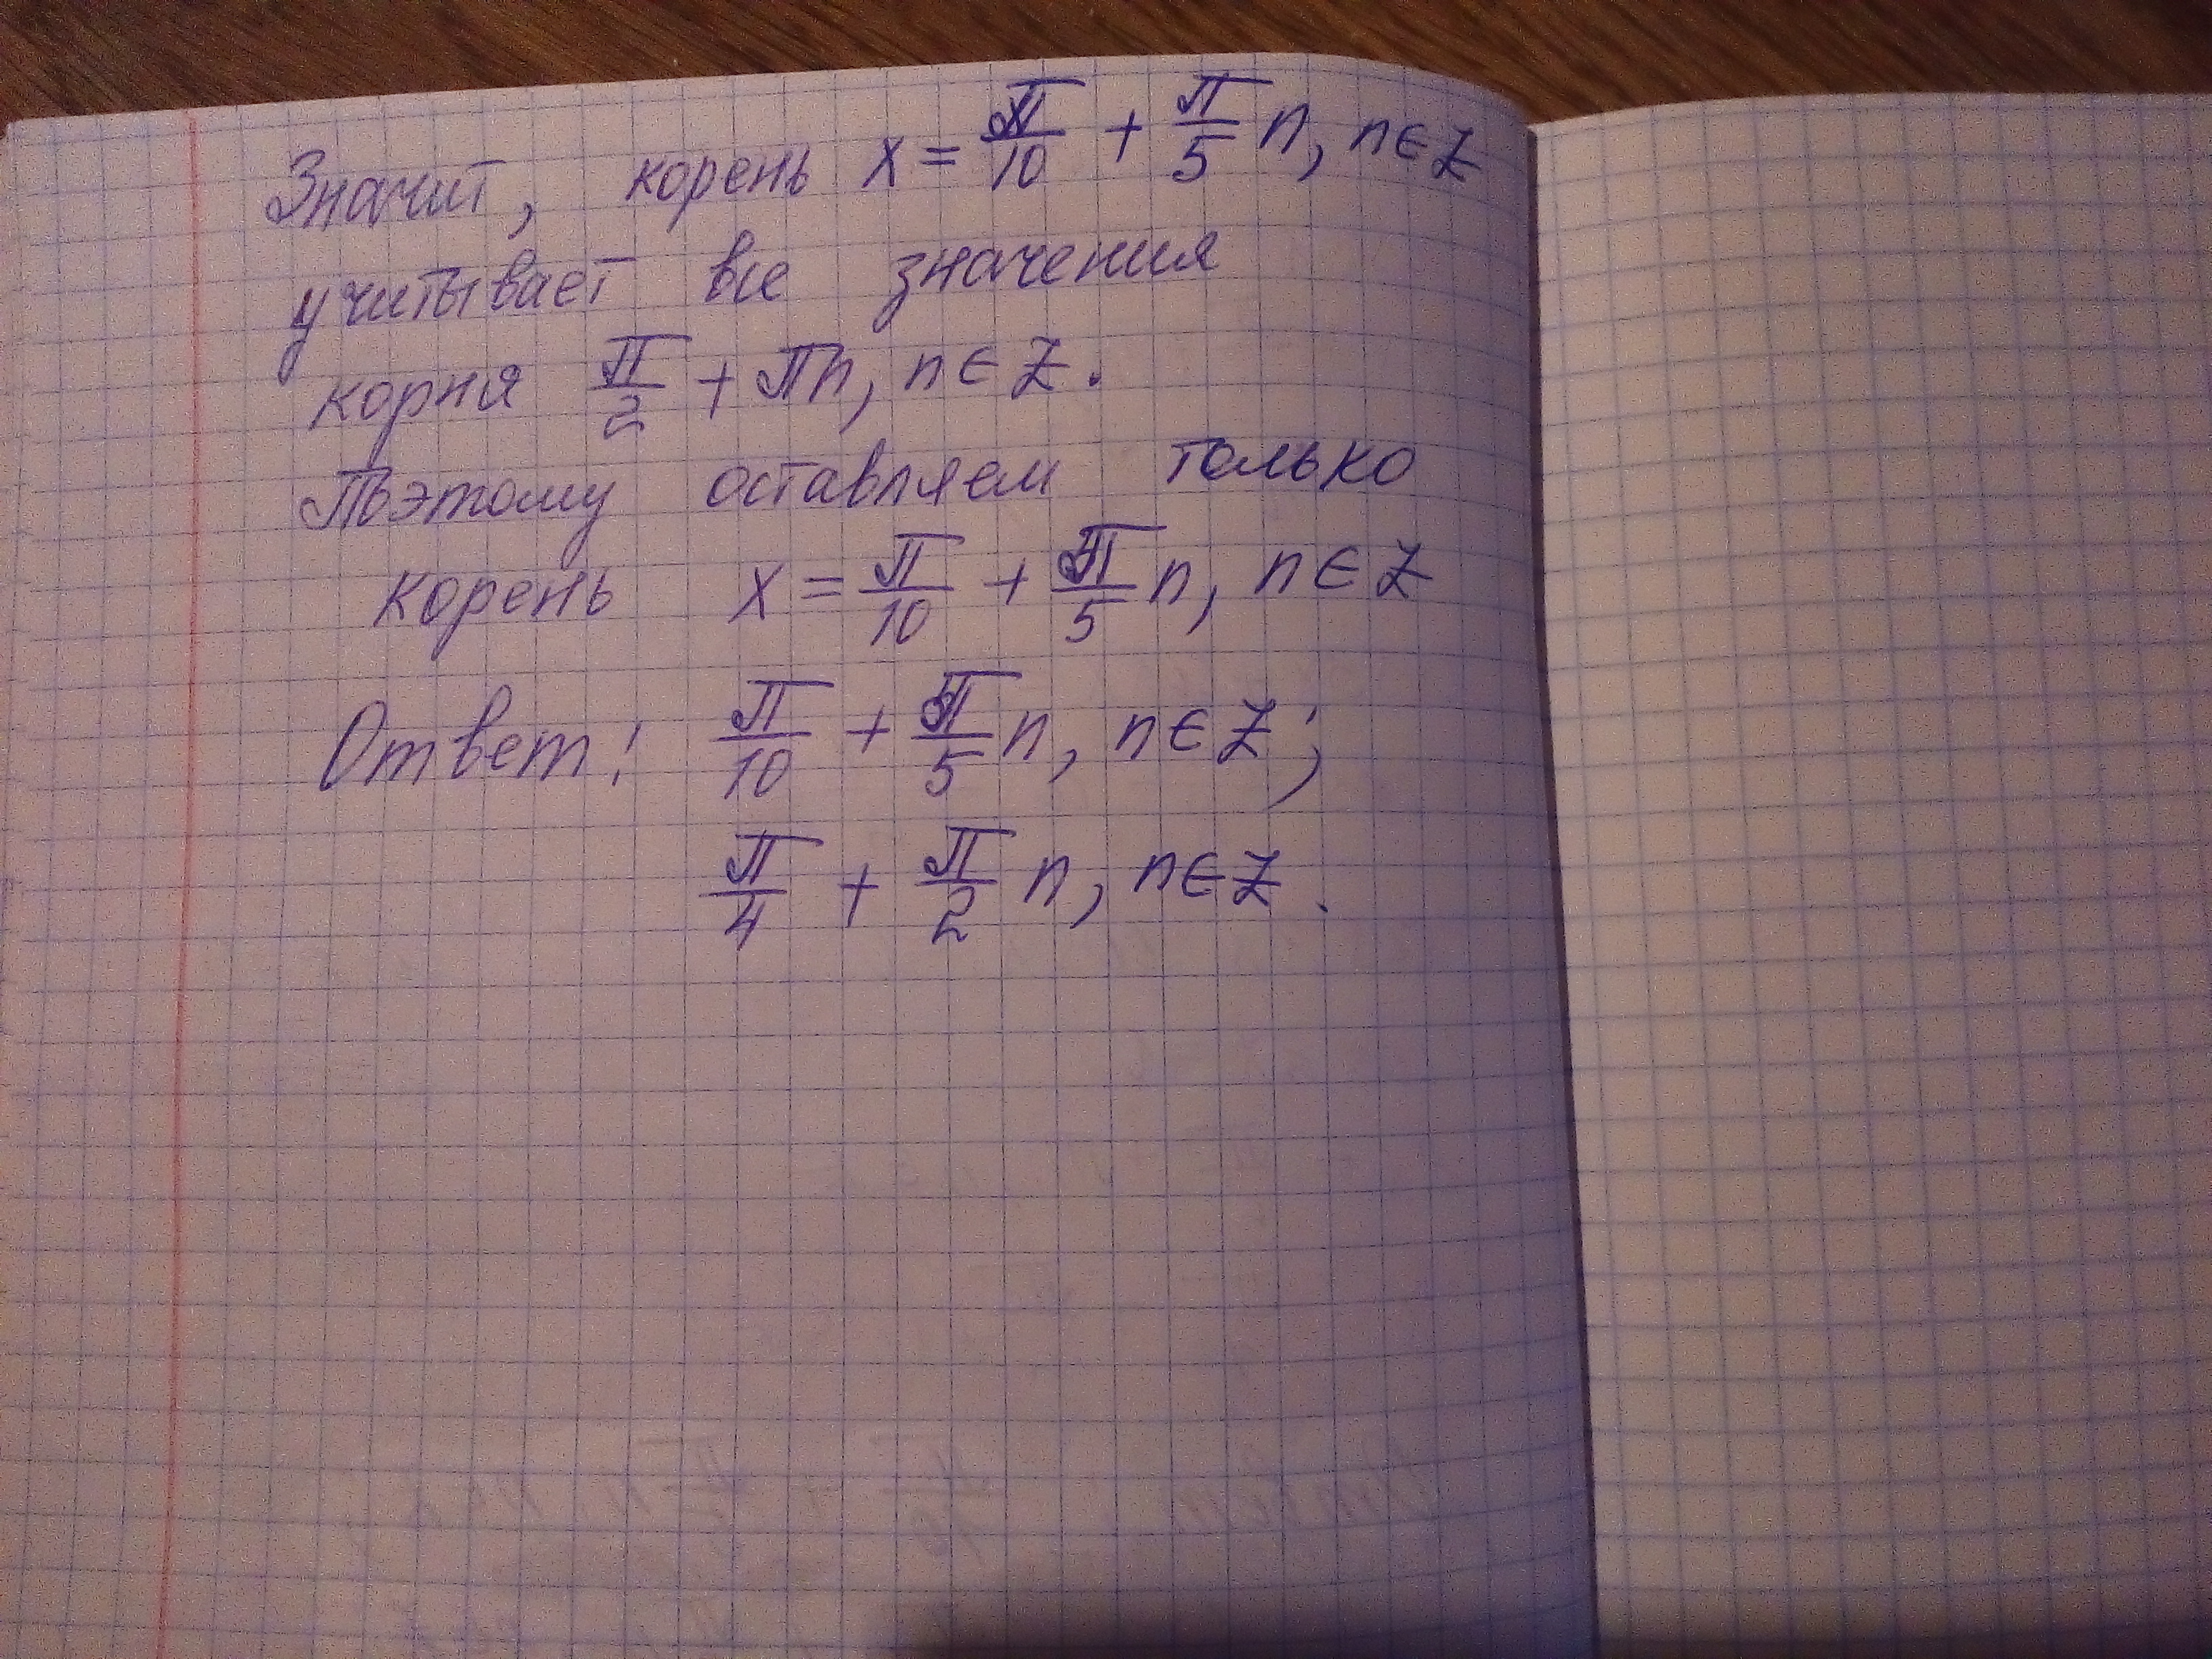 Значит, корень x = π/10 + π/5 n, n ∈ Z
учитывает все значения
корня π/2 + πn, n ∈ Z.
Поэтому оставляем только
корень x = π/10 + π/5 n, n ∈ Z
Ответ: π/10 + π/5 n, n ∈ Z;
π/4 + π/2 n, n ∈ Z.